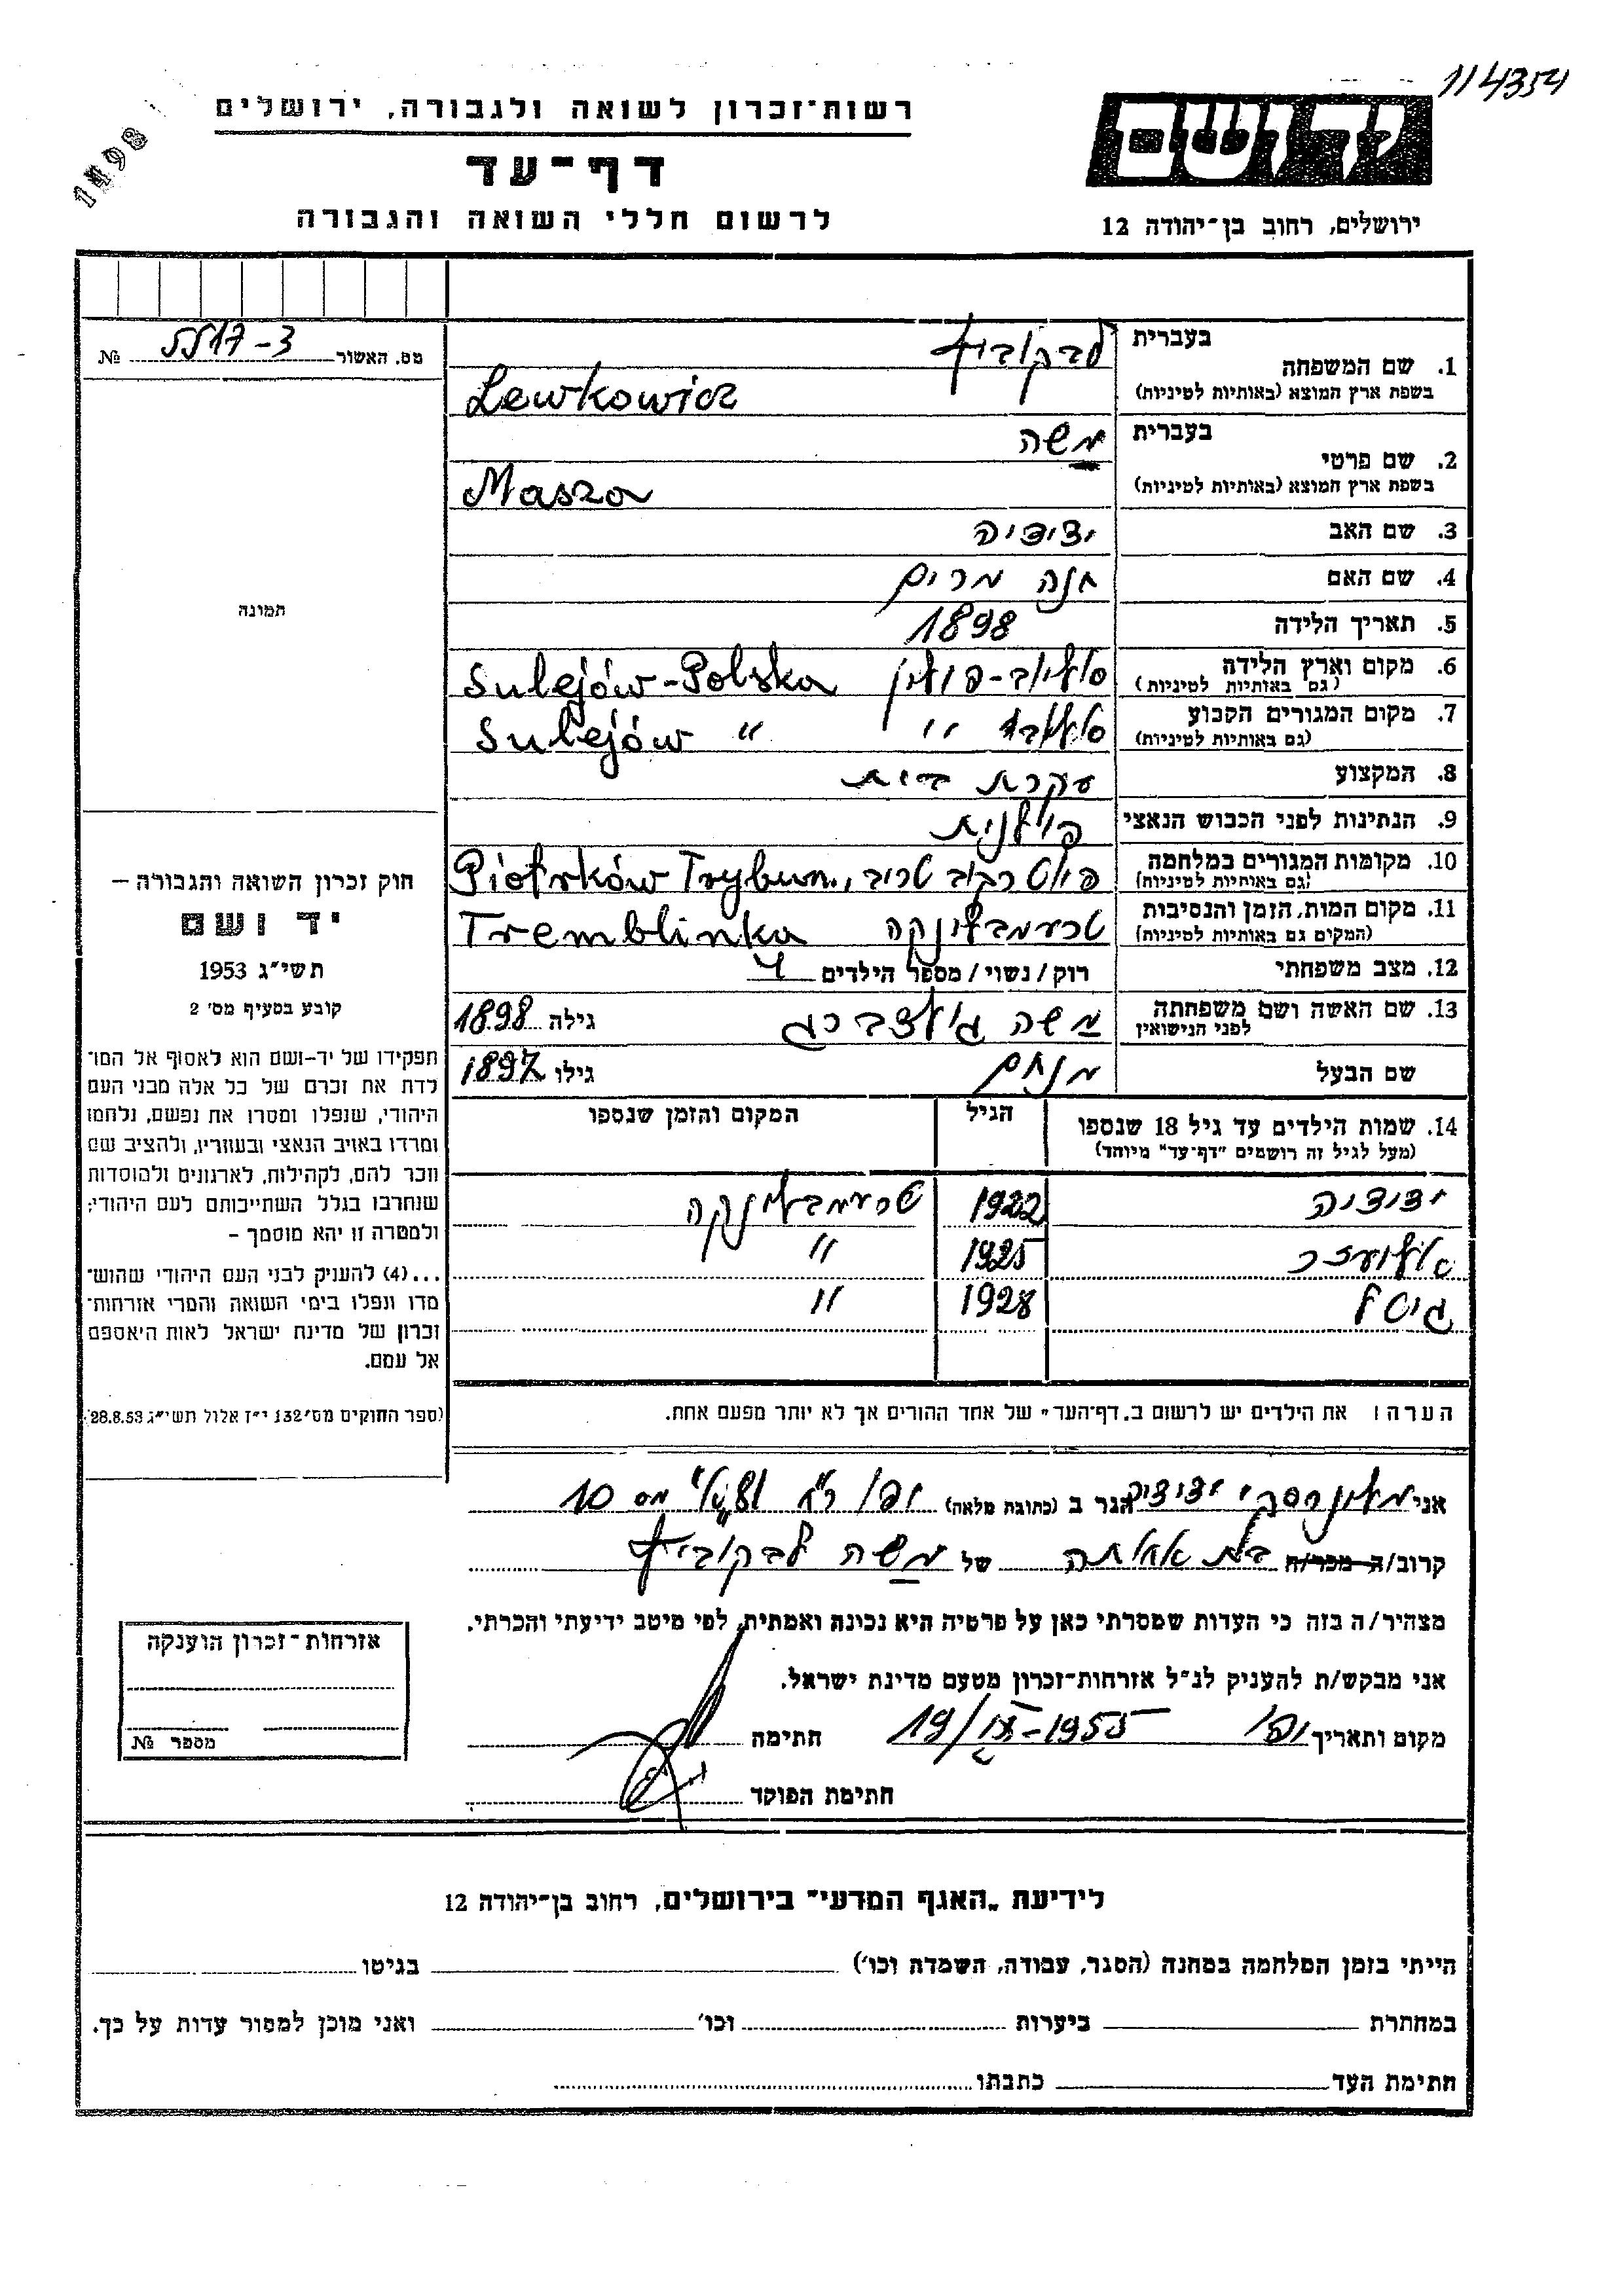 114354
רשות־זכרון לשואה ולגבורה, ירושלים
1498
דף־עד
לרשום חללי השואה והגבורה
יד ושם
ירושלים, רחוב בן־יהודה 12
מס. האשור 5517-3 №
בעברית לבקוביץ
1. שם המשפחה
בשפת ארץ המוצא (באותיות לטיניות) Lewkowicz
בעברית משה
2. שם פרטי
בשפת ארץ המוצא (באותיות לטיניות) Masza
3. שם האב ידידיה
4. שם האם חנה מרים
5. תאריך הלידה 1898
6. מקום וארץ הלידה סוליוב-פולין Sulejów-Polska
(גם באותיות לטיניות)
7. מקום המגורים הקבוע סוליוב " Sulejów "
(גם באותיות לטיניות)
8. המקצוע עקרת בית
9. הנתינות לפני הכבוש הנאצי פולנית
10. מקומות המגורים במלחמה פיוטרקוב טריב., Piotrków Trybun.
(גם באותיות לטיניות)
11. מקום המות, הזמן והנסיבות טרעמבלינקה Tremblinka
(המקום גם באותיות לטיניות)
12. מצב משפחתי רוק / נשוי / מספר הילדים 4
13. שם האשה ושם משפחתה משה גולדברג גילה 1898
לפני הנישואין
שם הבעל מנחם גילו 1897
14. שמות הילדים עד גיל 18 שנספו הגיל המקום והזמן שנספו
(מעל לגיל זה רושמים "דף־עד" מיוחד)
ידידיה 1922 טרעמבלינקה
1925 "
גיטל 1928 "
הערה: את הילדים יש לרשום ב„דף־העד" של אחד ההורים אך לא יותר מפעם אחת.
תמונה
חוק זכרון השואה והגבורה –
יד ושם
תשי"ג 1953
קובע בסעיף מס' 2
תפקידו של יד־ושם הוא לאסוף אל המו־
לדת את זכרם של כל אלה מבני העם
היהודי, שנפלו ומסרו את נפשם, נלחמו
ומרדו באויב הנאצי ובעוזריו, ולהציב שם
וזכר להם, לקהילות, לארגונים ולמוסדות
שנחרבו בגלל השתייכותם לעם היהודי;
ולמטרה זו יהא מוסמך –
...(4) להעניק לבני העם היהודי שהוש־
מדו ונפלו בימי השואה והמרי אזרחות־
זכרון של מדינת ישראל לאות היאספם
אל עמם.
(ספר החוקים מס' 132 י"ז אלול תשי"ג 28.8.53)
אני ידידיה הגר ב (כתובת מלאה) יפו רח' מס 10
קרוב/ה מכר/ה בת אחותה של משה לבקוביץ
מצהיר/ה בזה כי העדות שמסרתי כאן על פרטיה היא נכונה ואמתית, לפי מיטב ידיעתי והכרתי.
אני מבקש/ת להעניק לנ"ל אזרחות־זכרון מטעם מדינת ישראל.
מקום ותאריך יפו 19/IX-1955 חתימה
חתימת הפוקד
אזרחות־זכרון הוענקה
מספר №
לידיעת „האגף המדעי" בירושלים, רחוב בן־יהודה 12
הייתי בזמן המלחמה במחנה (הסגר, עבודה, השמדה וכו') בגיטו
במחתרת ביערות וכו' ואני מוכן למסור עדות על כך.
חתימת העד כתבתו